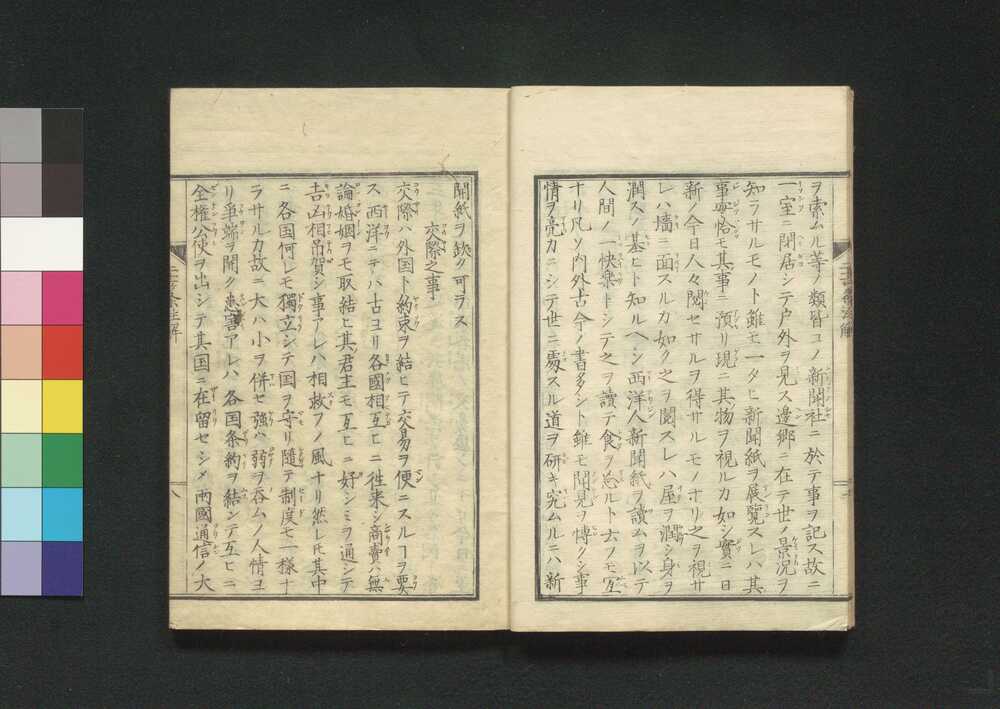 ヲ索ムル等ノ類皆コノ新聞社ニ於テ事ヲ記ス故ニ
一室ニ閉居シテ户外ヲ見ス邊郷ニ在テ世ノ景況ヲ
知ラサルモノト雖モ一タヒ新聞紙ヲ展覧スレハ其
事宛恰モ其事ニ預リ現ニ其物ヲ視ルカ如シ實ニ日
新ノ今日人々閲セサルヲ得サルモノナリ之ヲ視サ
レハ墻ニ面スルカ如ク之ヲ閲スレハ屋ヲ潤シ身ヲ
潤スノ基ヒト知ルヘシ西洋人新聞紙ヲ讀ムヲ以テ
人間ノ一快樂トシテ之ヲ讀テ食ヲ忘ルト云フモ宜
ナリ凡ソ内外古今ノ書多シト雖モ聞見ヲ博クシ事
情ヲ亮カニシテ世ニ處スル道ヲ研キ究ムルニハ新
聞紙ヲ欽ク可ラス
交際之事
交際ハ外国ト約束ヲ結ヒテ交易ヲ便ニスルヿヲ要
ス西洋ニテハ古ヨリ各國相互ヒニ徃来シ商賣ハ無
論婚姻ヲモ取結ヒ其君主モ互ヒニ好シミヲ通シテ
吉凶相吊賀シ事アレハ相救フノ風ナリ然レ𪜈其中
ニ各国何レモ獨立シテ国ヲ守リ隨テ制度モ一様ナ
ラサルカ故ニ大ハ小ヲ併セ強ハ弱ヲ吞ムノ人情ヨ
リ爭端ヲ開ク患害アレハ各国条約ヲ結ンテ互ヒニ
全権公使ヲ出シテ其国ニ在留セシメ両國通信ノ大
条註解
八